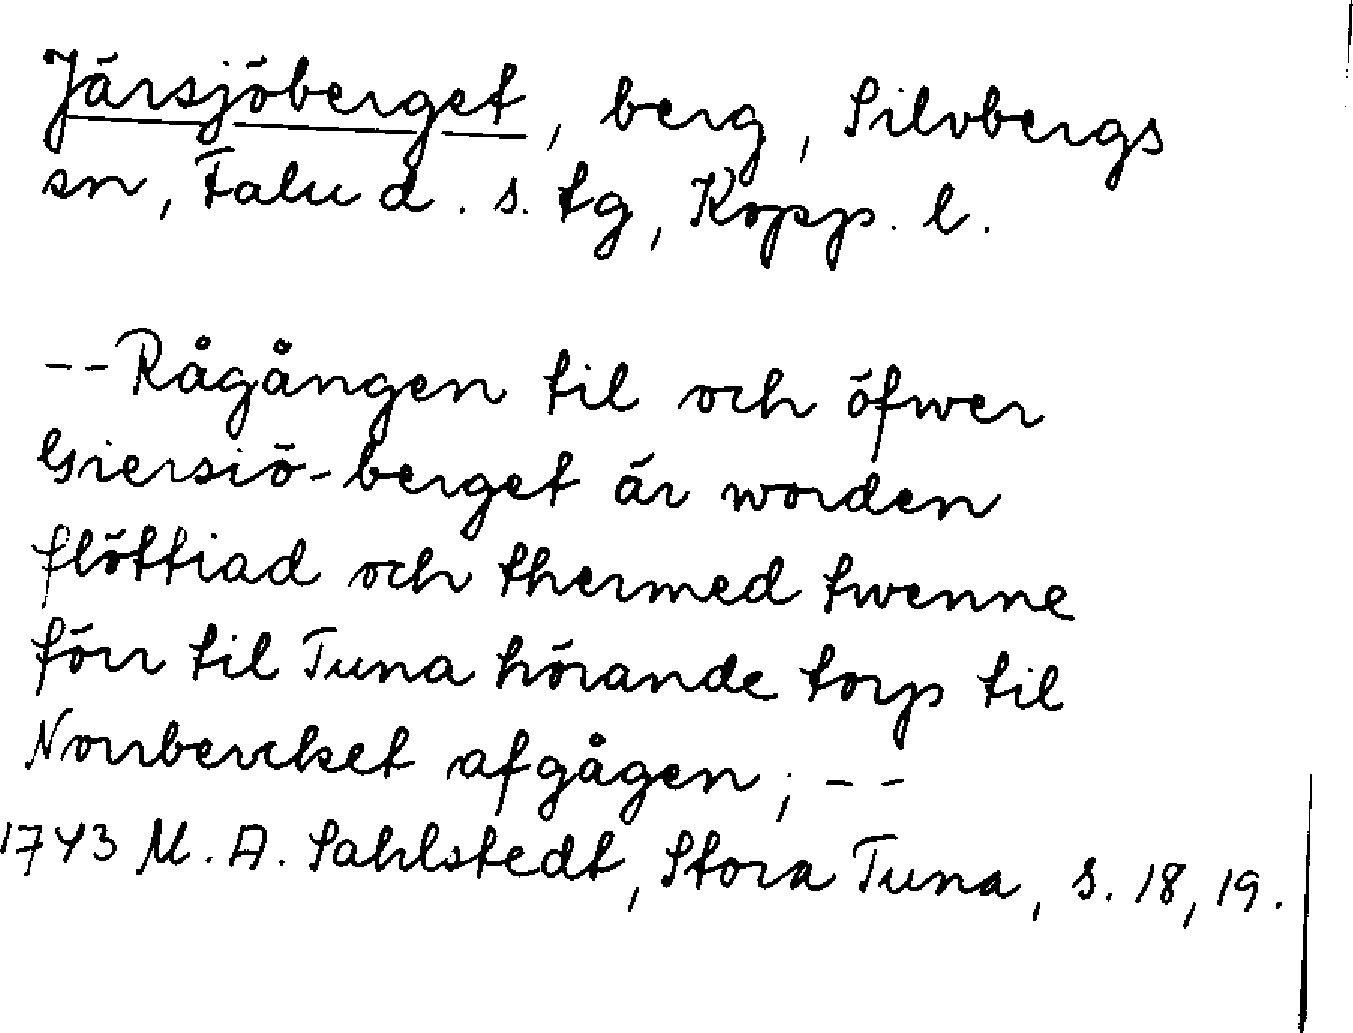 Järsjöberget, berg, Silvbergs
sn, Falu d. s. tg, Kopp. l.
-- Rågången til och öfwer
Giersiö-berget är worden
flöttiad och thermed twenne
förr til Tuna hörande torp til
Norrbercket afgågen; --
1743 M. A. Sahlstedt, Stora Tuna, s. 18, 19.